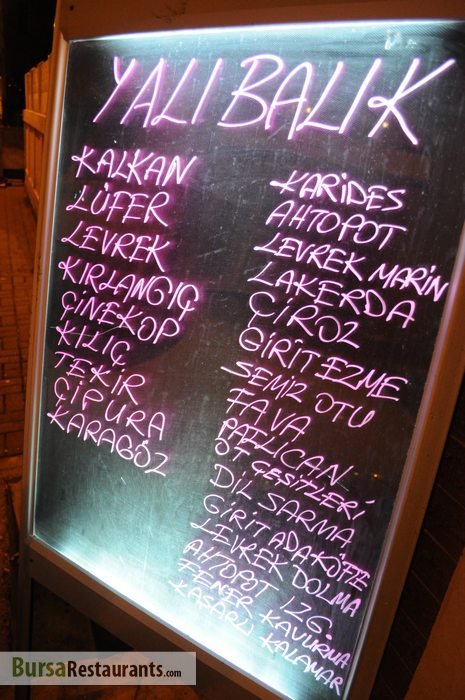 YALI BALIK
KALKAN
LÜFER
LEVREK
KIRLANGIÇ
ÇİNEKOP
KILIÇ
TEKİR
ÇİPURA
KARAGÖZ
KARİDES
AHTOPOT
LEVREK MARİN
LAKERDA
ÇİROZ
GİRİT EZME
SEMİZ OTU
FAVA
PATLICAN
OT ÇEŞİTLERİ
DİL SARMA
GİRİT ADA KÖFTE
LEVREK DOLMA
AHTOPOT IZG.
FENER KAVURMA
KAŞARLI KALAMAR
BursaRestaurants.com